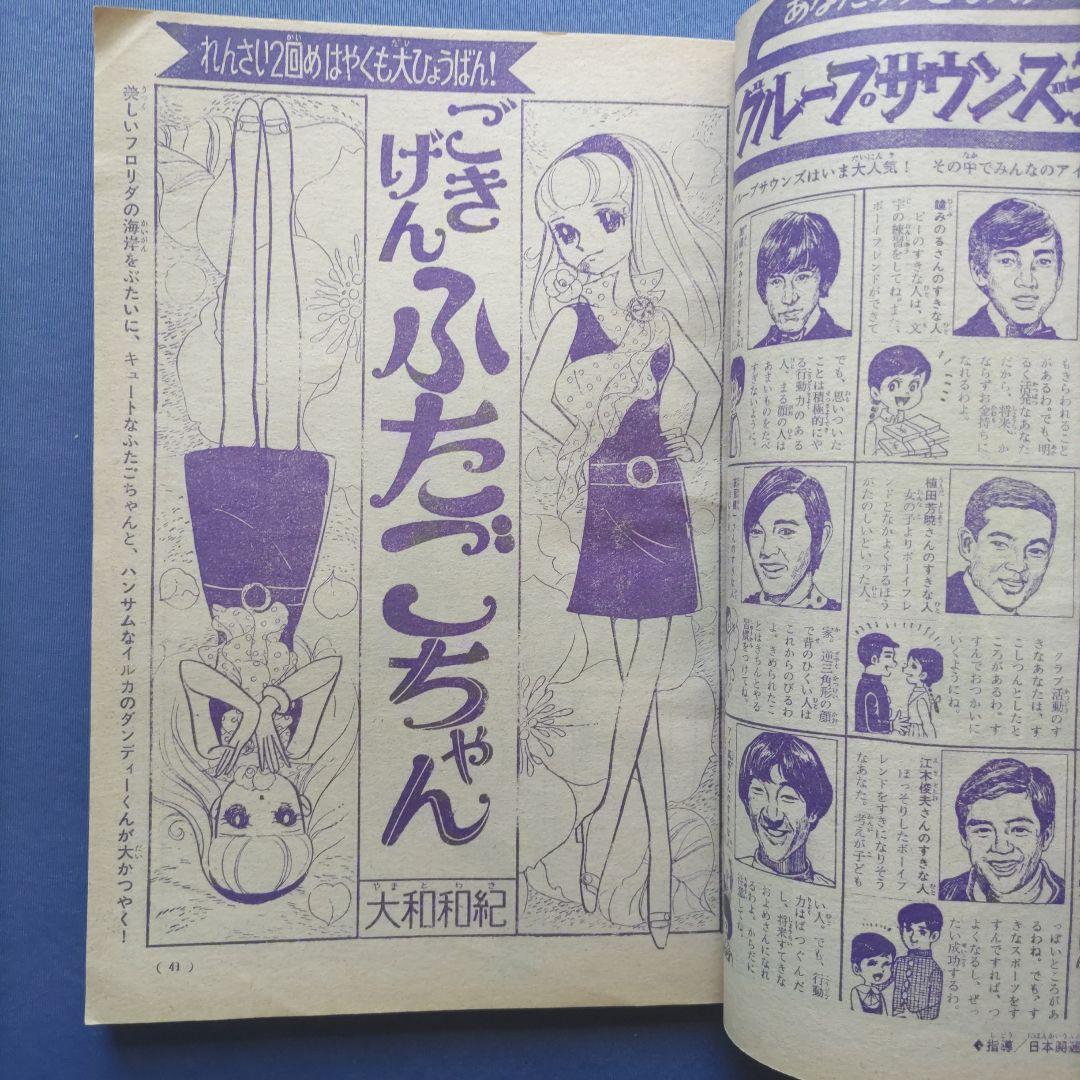 れんさい2回めはやくも大ひょうばん！
ごきげん
ふたごちゃん
大和和紀
やまとわき
美しいフロリダの海岸をぶたいに、キュートなふたごちゃんと、ハンサムなイルカのダンディーくんが大かつやく！
( 41 )
グループサウンズ
ループサウンズはいま大人気！　その中でみんなのアイ
瞳みのるさんのすきな人
ピーのすきな人は、文
字の練習をしてね。また、
ボーイフレンドができて
もきらわれること
があるわ。でも、明
るく活発なあなた
だから、将来、か
ならずお金持ちに
なれるわよ。
でも、思いついた
ことは積極的にや
る行動力のある
人。まる顔の人は
あまいものをたべ
すぎないように。
植田芳暁さんのすきな人
女の子よりボーイフレ
ンドとなかよくするほう
がたのしいといった人。
クラブ活動のす
きなあなたは、す
こしつんとしたと
ころがあるわ。す
すんでおつかいに
いくようにね。
家。逆三角形の顔
で背のひくい人は
これからのびるわ
よ。きめられたこ
とはきちんとやる
習慣をつけてね。
江木俊夫さんのすきな人
ほっそりしたボーイフ
レンドをすきになりそう
なあなた。考えが子ども
っぽいところがあ
るわね。でも、す
きなスポーツをす
すんですれば、つ
よくなるし、ぜっ
たい成功するわ。
い人。でも、行動
力はばつぐんだ
し、将来すてきな
およめさんになれ
るわよ。からだに
注意してね。
◆指導／日本